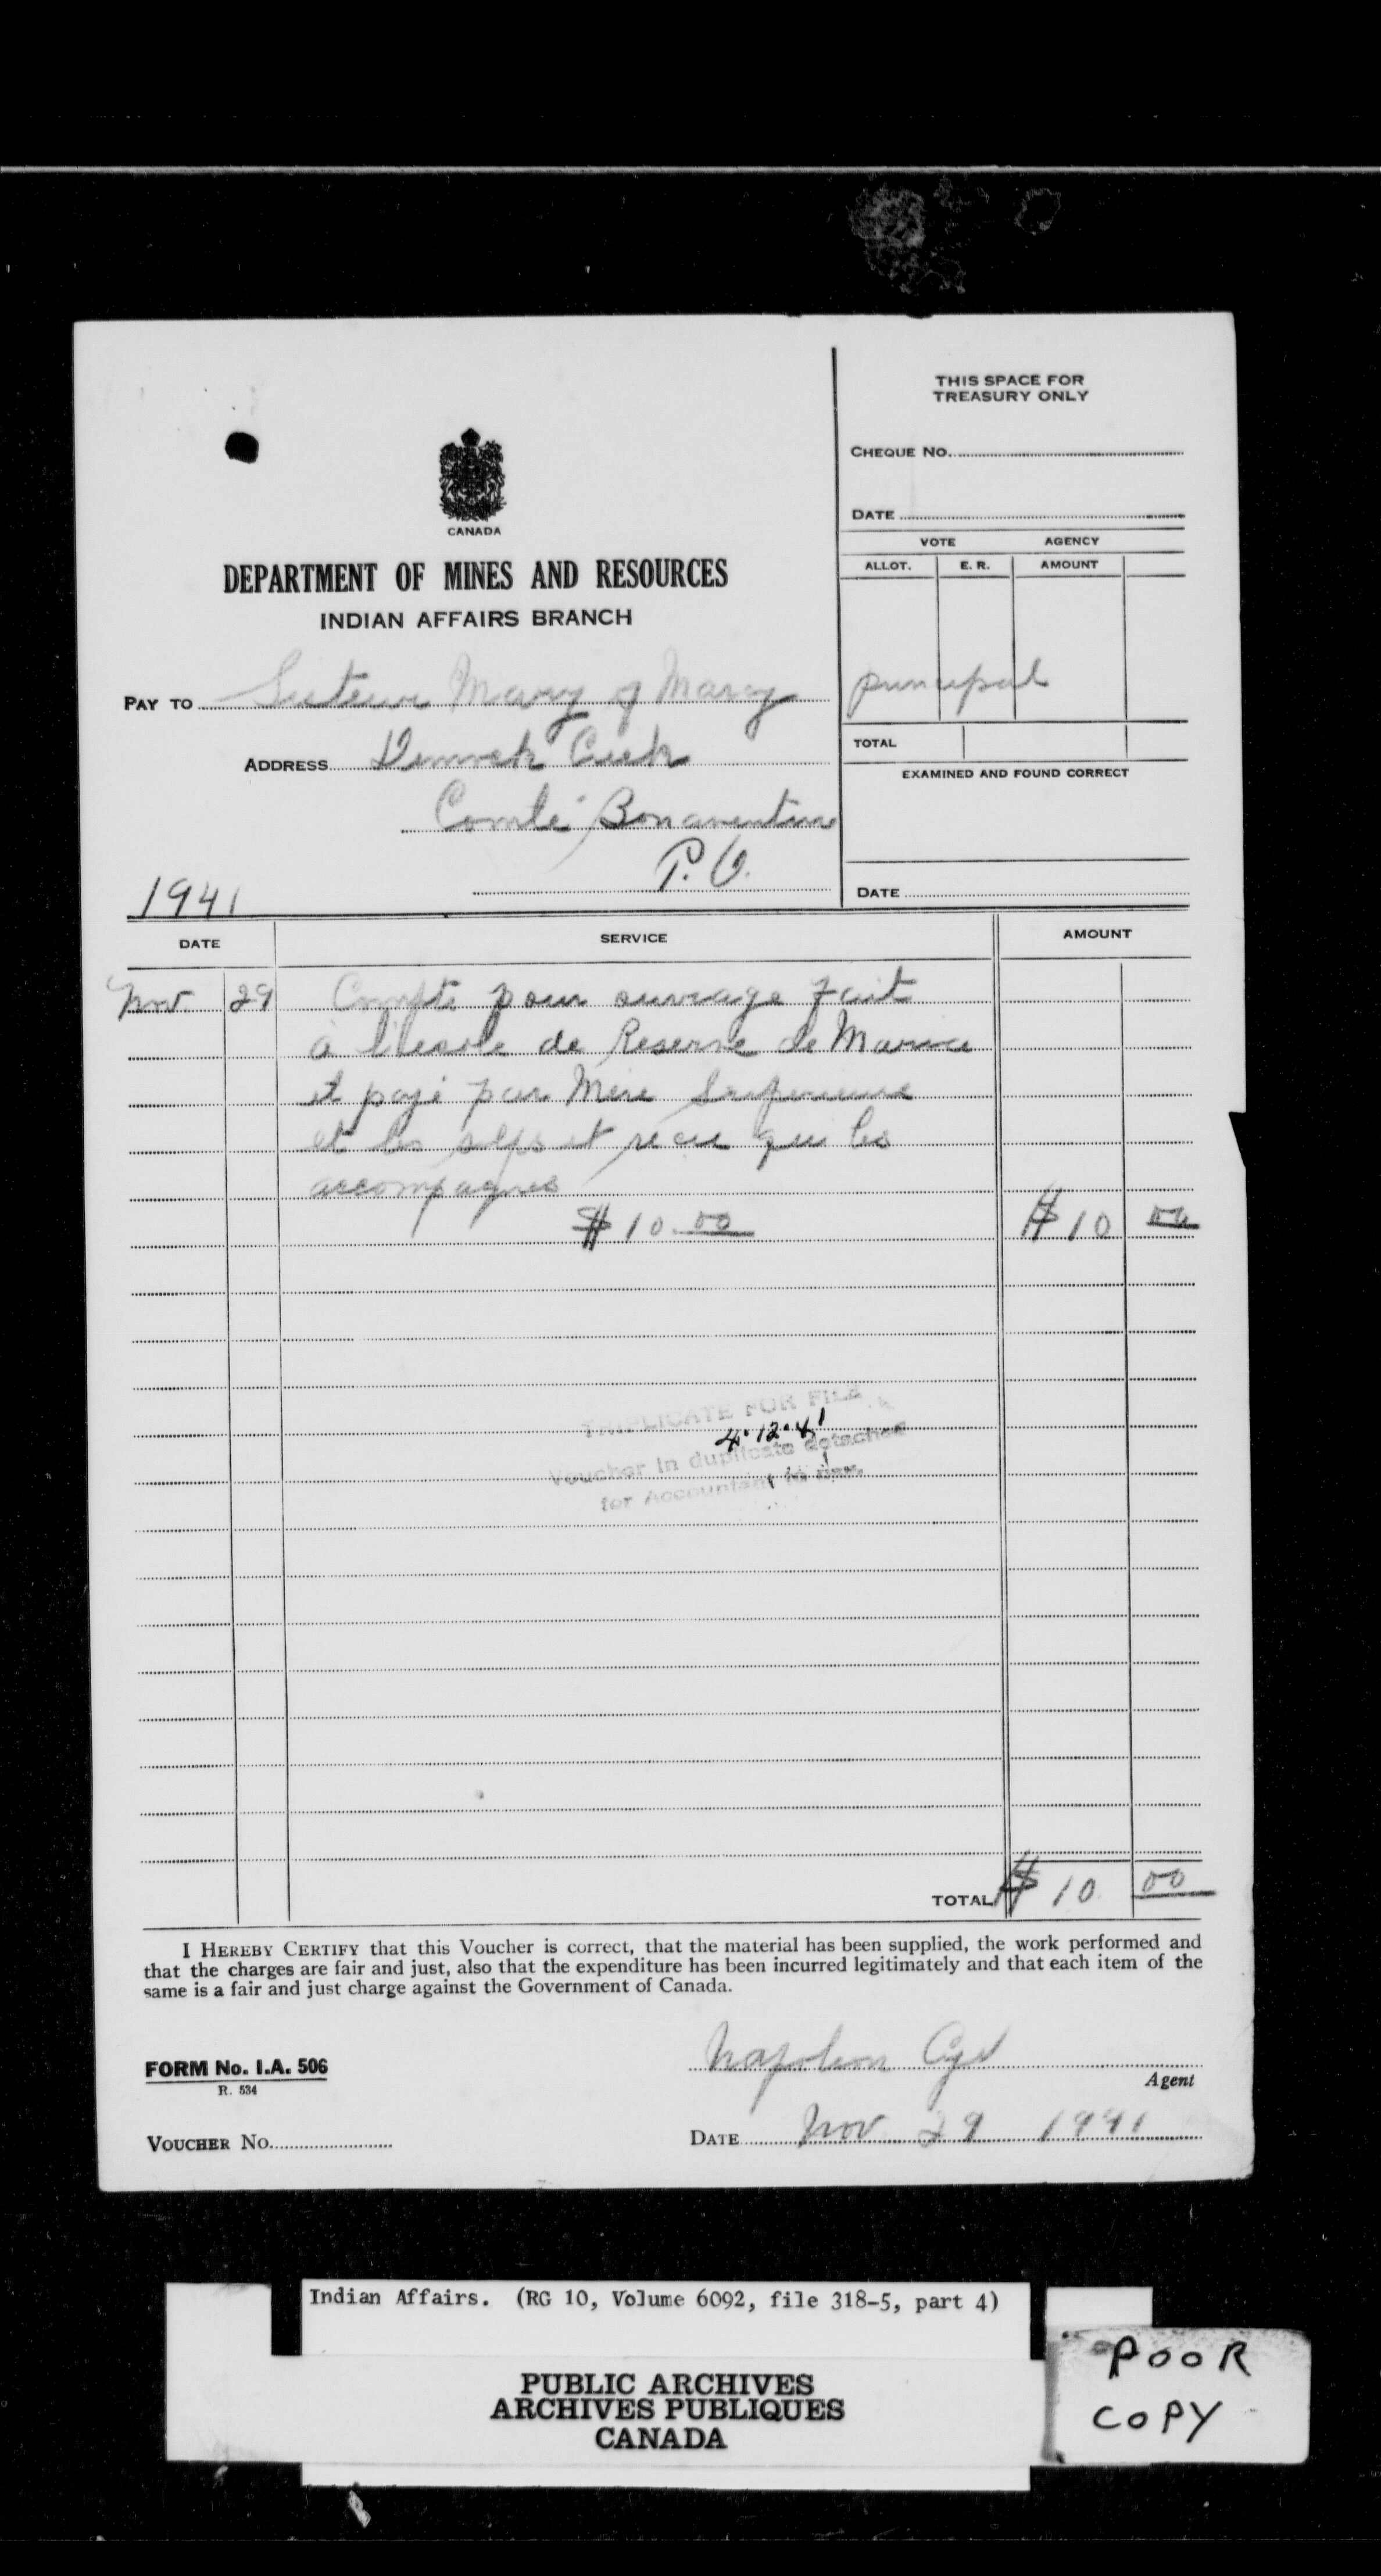 THIS SPACE FOR
TREASURY ONLY
CHEQUE NO.
DATE
VOTE AGENCY
ALLOT. E. R. AMOUNT
principal
TOTAL
EXAMINED AND FOUND CORRECT
DATE
CANADA
DEPARTMENT OF MINES AND RESOURCES
INDIAN AFFAIRS BRANCH
PAY TO Mary of Marcy
ADDRESS
Comté Bonaventure
P.Q.
1941
DATE SERVICE AMOUNT
Nov. 29 Compte pour ouvrage fait
a l'ecole de Reserve de Maria
et payé par Mere Superieure
et les et recu qui les
accompagnes
$10.00 $10 00
TRIPLICATE FOR FILE
4.12.41
Voucher in duplicate detached
for Accountant to pay.
TOTAL $10 00
I HEREBY CERTIFY that this Voucher is correct, that the material has been supplied, the work performed and
that the charges are fair and just, also that the expenditure has been incurred legitimately and that each item of the
same is a fair and just charge against the Government of Canada.
Napoleon Cyr
Agent
FORM No. I.A. 506
R. 534
VOUCHER No.
DATE Nov 29 1941
Indian Affairs. (RG 10, Volume 6092, file 318-5, part 4)
PUBLIC ARCHIVES
ARCHIVES PUBLIQUES
CANADA
POOR
COPY